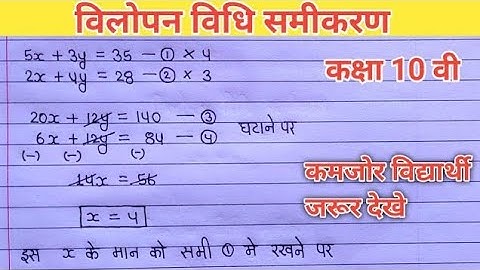 विलोपन विधि समीकरण
5x + 3y = 35 — ① × 4
2x + 4y = 28 — ② × 3
कक्षा 10 वी
20x + 12y = 140 — ③
6x + 12y = 84 — ④
घटाने पर
(-) (-) (-)
14x = 56
x = 4
कमजोर विद्यार्थी
जरूर देखे
इस x के मान को समी ① मे रखने पर